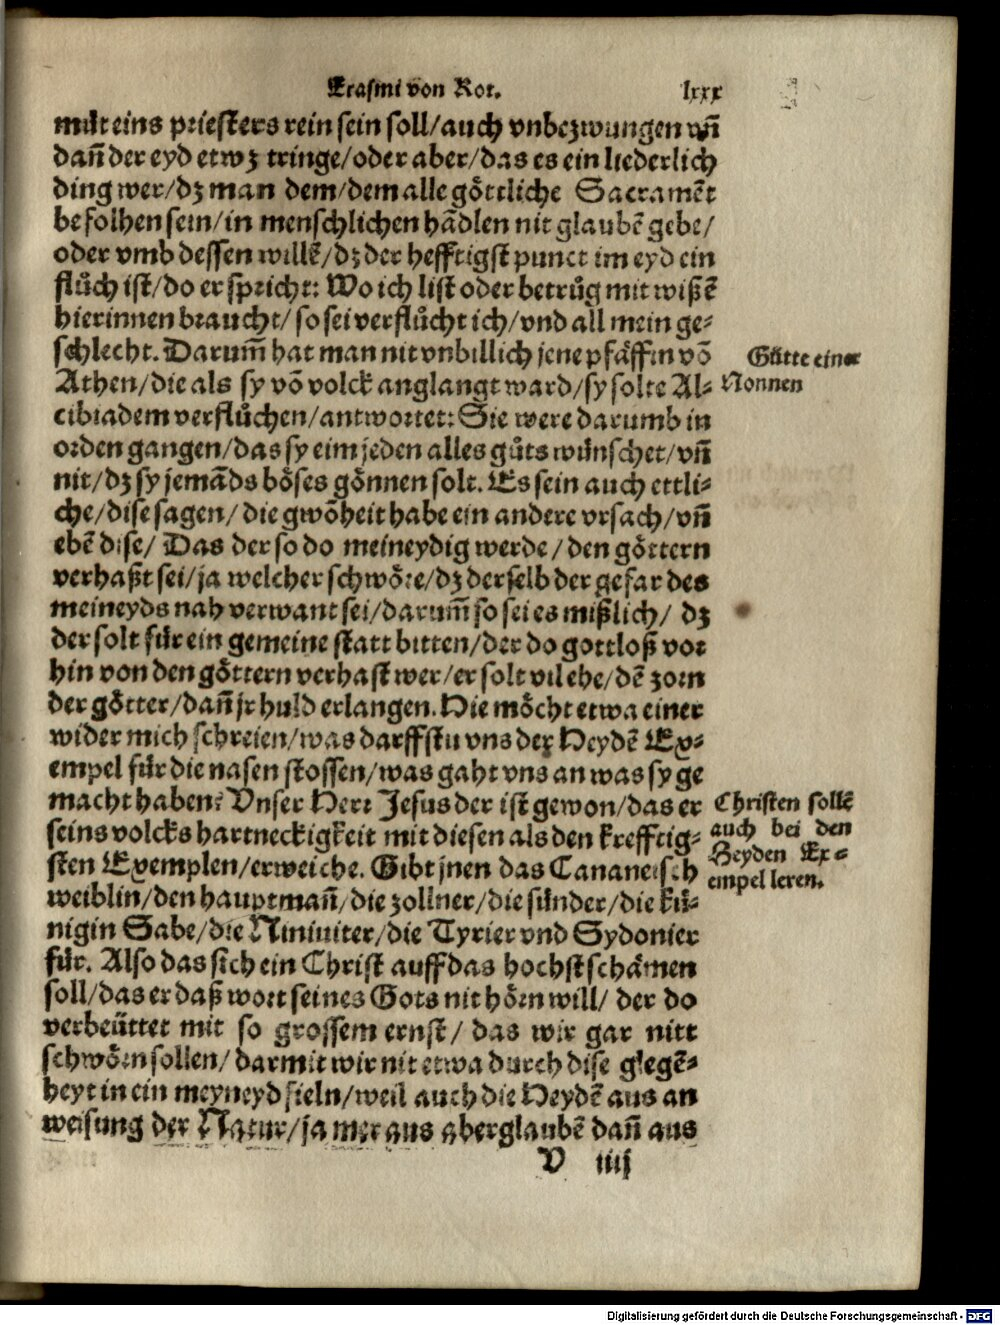 Erasmi von Rot. lxxx
mût eins priesters rein sein soll/auch vnbezwungen vñ
dañ der eyd etwz tringe/oder aber/das es ein liederlich
ding wer/dz man dem/dem alle göttliche Sacramēt
befolhen sein/in menschlichen hādlen nit glaubē gebe/
oder vmb dessen willē/dz der hefftigst punct im eyd ein
flůch ist/do er spricht: Wo ich list oder betrůg mit wißē
hierinnen braucht/so sei verflůcht ich/vnd all mein ge-
schlecht. Darum̄ hat man nit vnbillich jene pfäffin vō
Athen/die als sy vō volck anglangt ward/sy solte Al-
cibiadem verflůchen/antwortet: Sie were darumb in
orden gangen/das sy eim jeden alles gůts wünschet/vñ
nit/dz sy jemāds böses gönnen solt. Es sein auch ettli-
che/dise sagen/die gwōheit habe ein andere vrsach/vñ
ebē dise/Das der so do meineydig werde/den göttern
verhaßt sei/ja welcher schwöre/dz derselb der gefar des
meineyds nah verwant sei/darum̄ so sei es mißlich/ dz
der solt für ein gemeine statt bitten/der do gottloß vor
hin von den göttern verhast wer/er solt vil ehe/dē zorn
der götter/dañ jr huld erlangen. Hie möcht etwa einer
wider mich schreien/was darffstu vns der Heydē Ex-
empel für die nasen stossen/was gaht vns an was sy ge
macht haben? Vnser Herr Jesus der ist gewon/das er
seins volcks hartneckigkeit mit diesen als den krefftig-
sten Exemplen/erweiche. Gibt jnen das Cananeisch
weiblin/den hauptmañ/die zollner/die sünder/die kü-
nigin Saba/die Niniuiter/die Tyrier vnd Sydonier
für. Also das sich ein Christ auff das hochst schämen
soll/das er daß wort seines Gots nit hörn will/ der do
verbeüttet mit so grossem ernst/ das wir gar nitt
schwörn sollen/darmit wir nit etwa durch dise glegē-
heyt in ein meyneyd fieln/weil auch die Heydē aus an
weisung der Natur/ja mer aus aberglaubē dañ aus
V iiij
Gütte einer
Nonnen
Christen sollē
auch bei den
Heyden Ex-
empel leren.
Digitalisierung gefördert durch die Deutsche Forschungsgemeinschaft - DFG